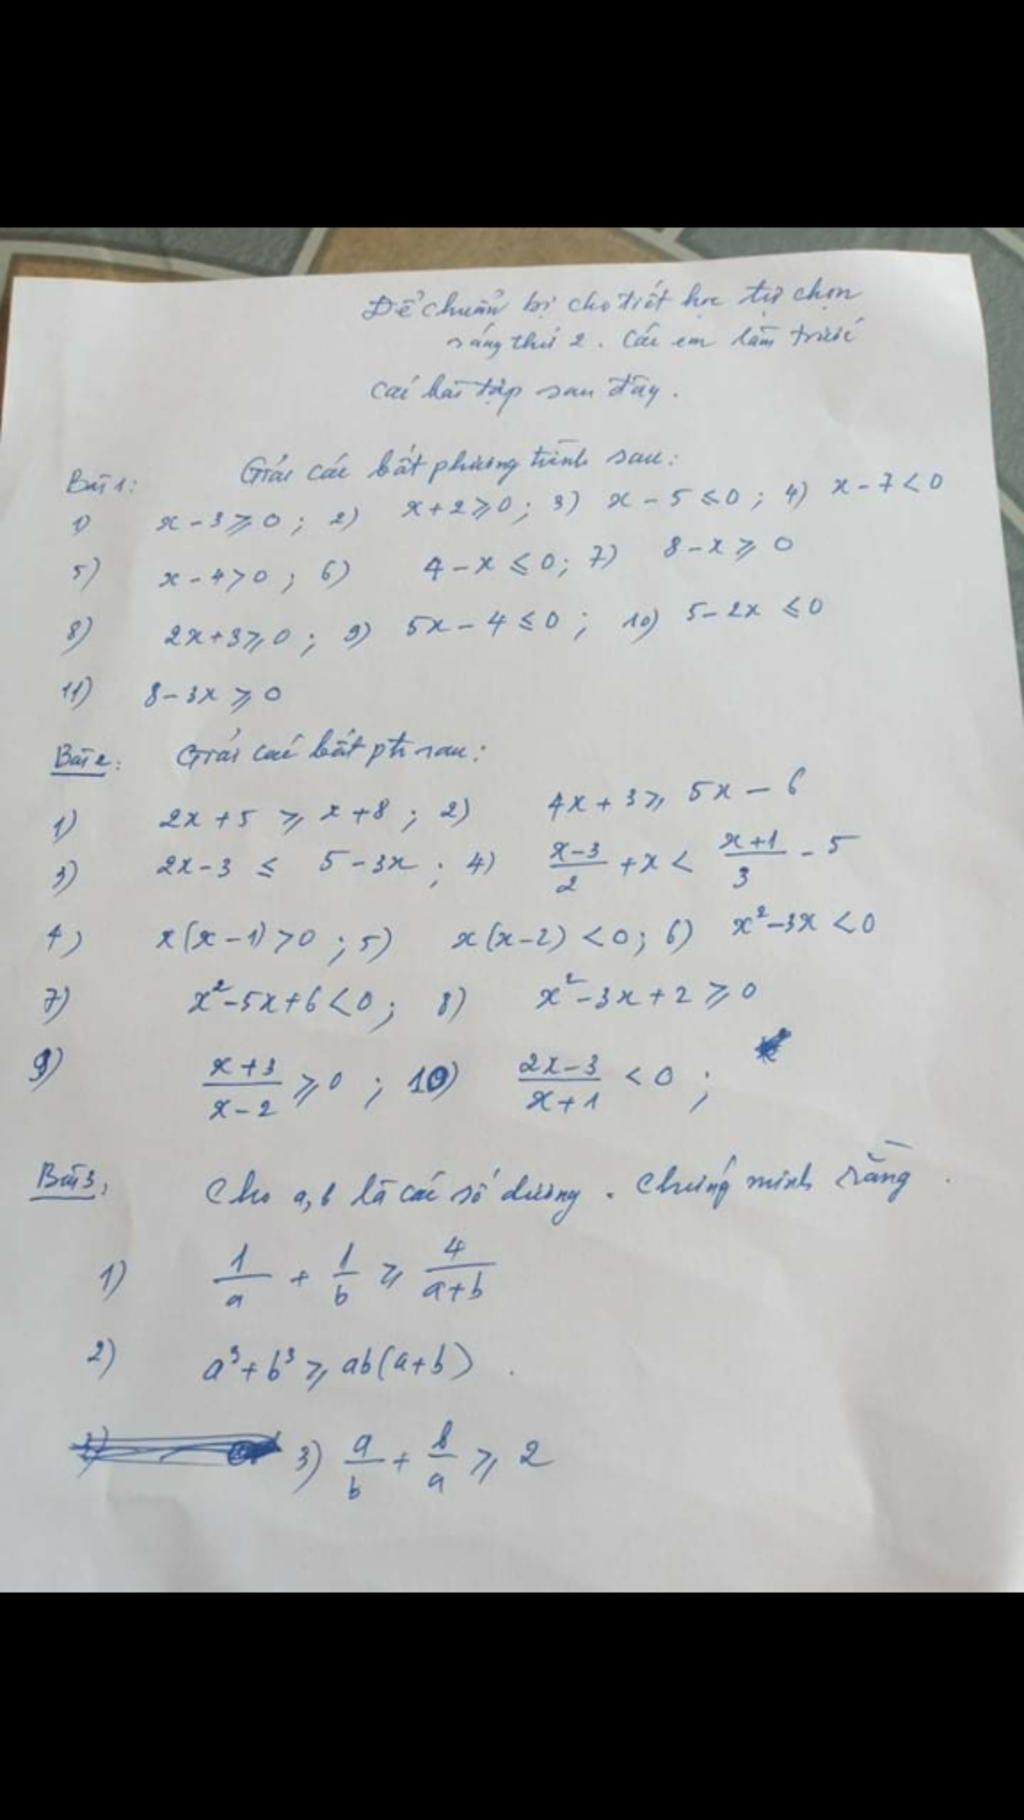 Để chuẩn bị cho tiết học tự chọn
sáng thứ 2. Các em làm trước
các bài tập sau đây.
Bài 1: Giải các bất phương trình sau:
1) x - 3 ⩾ 0 ; 2) x + 2 ⩾ 0 ; 3) x - 5 ≤ 0 ; 4) x - 7 < 0
5) x - 4 > 0 ; 6) 4 - x ≤ 0 ; 7) 8 - x ⩾ 0
8) 2x + 3 ⩾ 0 ; 9) 5x - 4 ≤ 0 ; 10) 5 - 2x ≤ 0
11) 8 - 3x ⩾ 0
Bài 2: Giải các bất ptr sau:
1) 2x + 5 ⩾ x + 8 ; 2) 4x + 3 ⩾ 5x - 6
3) 2x - 3 ≤ 5 - 3x ; 4) (x-3)/2 + x < (x+1)/3 - 5
4) x(x - 1) > 0 ; 5) x(x - 2) < 0 ; 6) x² - 3x < 0
7) x² - 5x + 6 < 0 ; 8) x² - 3x + 2 ⩾ 0
9) (x+3)/(x-2) ⩾ 0 ; 10) (2x-3)/(x+1) < 0 ;
Bài 3: Cho a, b là các số dương. Chứng minh rằng
1) 1/a + 1/b ⩾ 4/(a+b)
2) a³ + b³ ⩾ ab(a+b).
3) a/b + b/a ⩾ 2